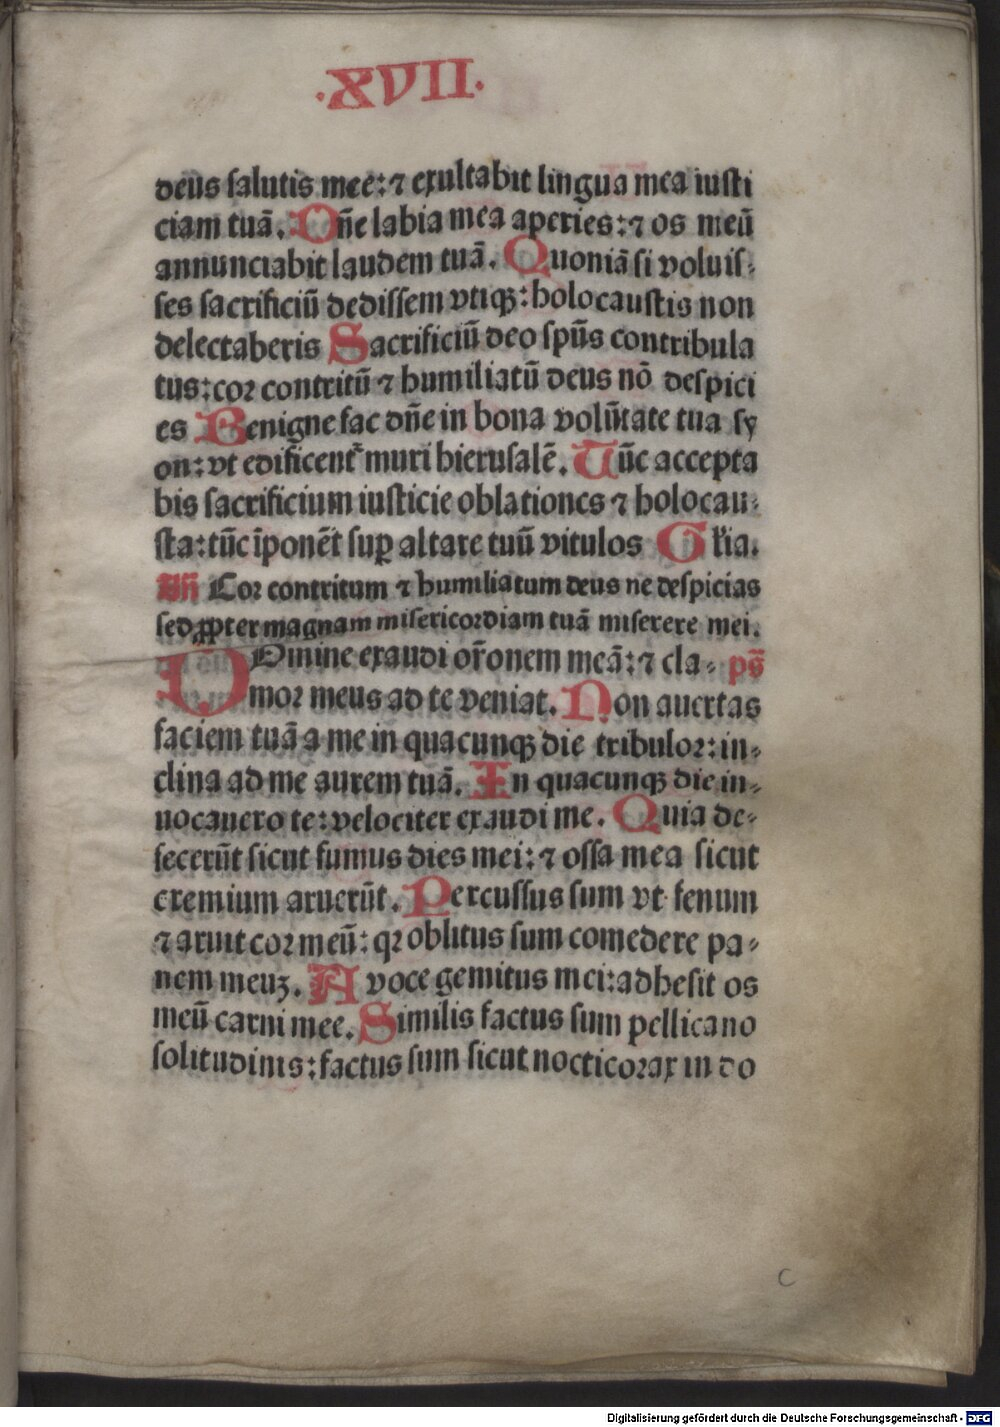 ·XVII·
deus salutis mee: ⁊ exultabit lingua mea iusti
ciam tuã. Dñe labia mea aperies: ⁊ os meũ
annunciabit laudem tuã. Quoniã si voluis-
ses sacrificiũ dedissem vtiqꝫ: holocaustis non
delectaberis Sacrificiũ deo spũs contribula
tus: cor contritũ ⁊ humiliatũ deus nõ despici
es Benigne fac dñe in bona volũtate tua sy
on: vt edificent᷑ muri hierusalẽ. Tũc accepta
bis sacrificium iusticie oblationes ⁊ holocau-
sta: tũc ĩponẽt suꝑ altare tuũ vitulos Gl'ia.
Añ Cor contritum ⁊ humiliatum deus ne despicias
sed ꝓpter magnam misericordiam tuã miserere mei.
DOmine exaudi or̃onem meã: ⁊ cla- ps̃
mor meus ad te veniat. Non auertas
faciem tuã a me in quacunqꝫ die tribulor: in-
clina ad me aurem tuã. In quacunqꝫ die in-
uocauero te: velociter exaudi me. Quia de-
fecerũt sicut fumus dies mei: ⁊ ossa mea sicut
cremium aruerũt. Percussus sum vt fenum
⁊ aruit cor meũ: qꝛ oblitus sum comedere pa-
nem meuꝫ. A voce gemitus mei: adhesit os
meũ carni mee. Similis factus sum pellicano
solitudinis: factus sum sicut nocticorax in do
c
Digitalisierung gefördert durch die Deutsche Forschungsgemeinschaft - DFG